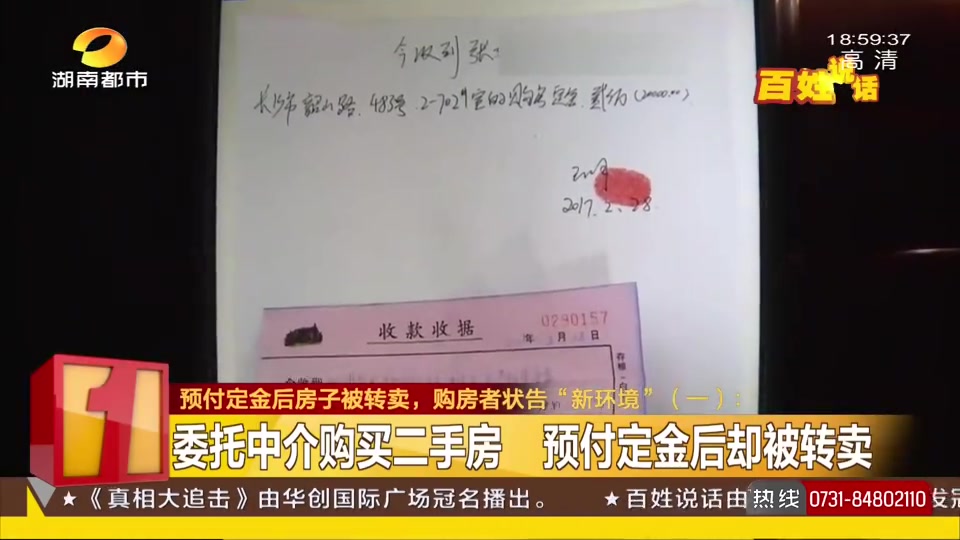 湖南都市
18:59:37
高清
百姓说话
今收到张
长沙市韶山路483号2-702室的购房定金贰万(20000.00)
2017.2.28
收款收据
0290157
年 月 日
存根
预付定金后房子被转卖，购房者状告“新环境”（一）：
委托中介购买二手房 预付定金后却被转卖
★《真相大追击》由华创国际广场冠名播出。 ★百姓说话由
热线 0731-84802110
发冠